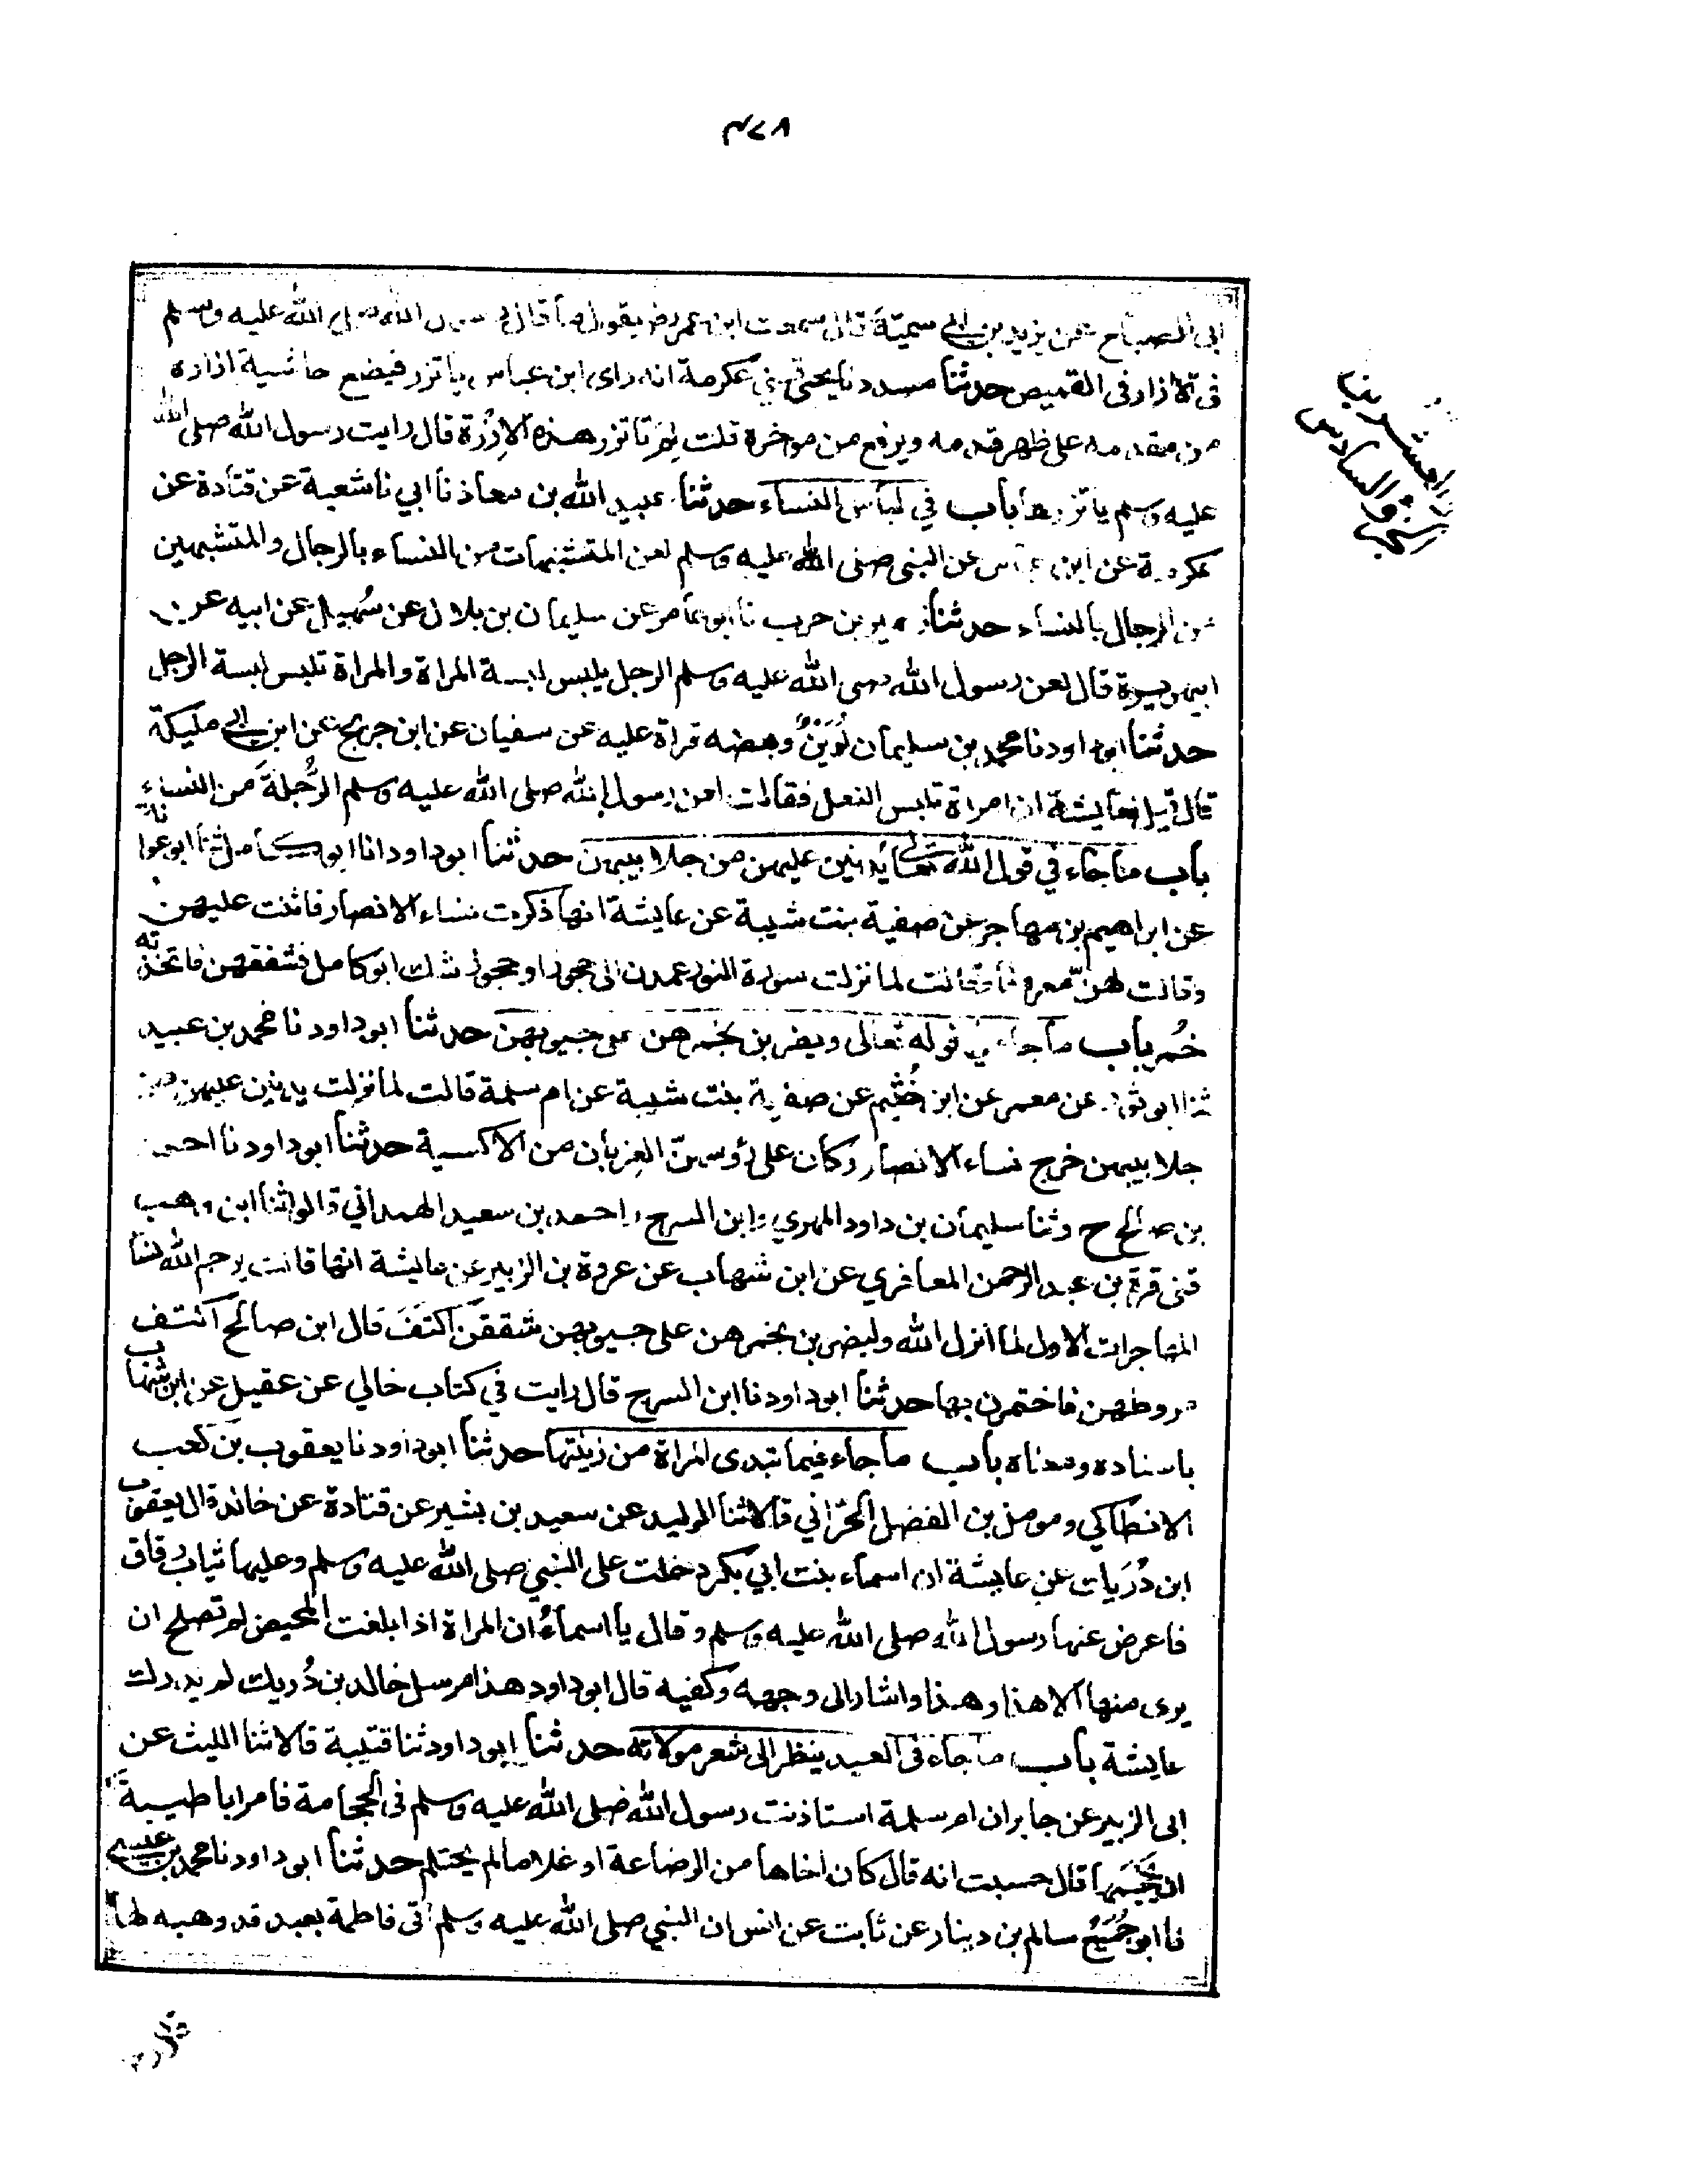 ٤٧٨
ابى الصباح عن يزيد بن ابي سمية قال سمعت ابن عمر يقول ما قال رسول الله صلى الله عليه وسلم
فى الازار فى القميص حدثنا مسدد نا يحيى عكرمة انه راى ابن عباس ياتزر فيضع حاشية ازاره
من مقدمه على ظهر قدمه ويرفع من موخره قلت لم تاتزر هذه الازرة قال رايت رسول الله صلى الله
عليه وسلم ياتزرها باب في لباس النساء حدثنا عبيد الله بن معاذ نا ابي نا شعبة عن قتادة عن
عكرمة عن ابن عباس عن النبى صلى الله عليه وسلم لعن المتشبهات من النساء بالرجال والمتشبهين
من الرجال بالنساء حدثنا زهير بن حرب نا ابو عامر عن سليمان بن بلال عن سُهيل عن ابيه عن
ابي هريرة قال لعن رسول الله صلى الله عليه وسلم الرجل يلبس لبسة المراة والمراة تلبس لبسة الرجل
حدثنا ابو داود نا محمد بن سليمان لُوَيْنٌ وبعضه قراة عليه عن سفيان عن ابن جريج عن ابن ابي مليكة
قال قيل لعايشة ان امراة تلبس النعل فقالت لعن رسول الله صلى الله عليه وسلم الرَّجُلةَ من النساء
باب ما جاء في قول الله تعالى يدنين عليهن من جلابيبهن حدثنا ابو داود انا ابو كامل ثنا ابو عوانة
عن ابراهيم بن مهاجر عن صفية بنت شيبة عن عايشة انها ذكرت نساء الانصار فاثنت عليهن
وقالت لهنّ معروفا وقالت لما نزلت سورة النور عمدن الى حجور او حجوز شك ابو كامل فشققنهن فاتخذنه
خُمر باب ما جاء في قوله تعالى وليضربن بخمرهن على جيوبهن حدثنا ابو داود نا محمد بن عبيد
ثنا ابو ثور عن معمر عن ابن خُثيم عن صفية بنت شيبة عن ام سلمة قالت لما نزلت يدنين عليهن من
جلابيبهن خرج نساء الانصار وكان على رؤوسهنّ الغربان من الاكسية حدثنا ابو داود نا احمد
بن صالح ح وثنا سليمان بن داود المهري وابن السرح واحمد بن سعيد الهمداني قالوا ثنا ابن وهب
قنى قرة بن عبد الرحمن المعافري عن ابن شهاب عن عروة بن الزبير عن عايشة انها قالت يرحم الله نسا
المهاجرات الاول لما انزل الله وليضربن بخمرهن على جيوبهن شققن اكنفَ قال ابن صالح اكنف
مروطهن فاختمرن بها حدثنا ابو داود نا ابن السرح قال رايت في كتاب خالي عن عقيل عن ابن شهاب
باسناده ومعناه باب ما جاء فيما تبدى المراة من زينتها حدثنا ابو داود نا يعقوب بن كعب
الانطاكي ومومل بن الفضل الحرّاني قالا ثنا الوليد عن سعيد بن بشير عن قتادة عن خالد قال يعقوب
ابن دُرَيك عن عايشة ان اسماء بنت ابي بكر دخلت على النبي صلى الله عليه وسلم وعليها ثياب رقاق
فاعرض عنها رسول الله صلى الله عليه وسلم وقال يا اسماءُ ان المراة اذا بلغت المحيض لم تصلح ان
يرى منها الا هذا وهذا واشار الى وجهه وكفيه قال ابو داود هذا مرسل خالد بن دُريك لم يدرك
عايشة باب ما جاء فى العبد ينظر الى شعر مولاته حدثنا ابو داود ثنا قتيبة قالا ثنا الليث عن
ابى الزبير عن جابر ان ام سلمة استاذنت رسول الله صلى الله عليه وسلم فى الحجامة فامر ابا طيبةَ
ان يحجمها قال حسبت انه قال كان اخاها من الرضاعة او غلاما لم يحتلم حدثنا ابو داود نا محمد بن عيسى
نا ابو جُمَيْع سالم بن دينار عن ثابت عن انس ان النبي صلى الله عليه وسلم اتى فاطمة بعبد قد وهبه لها
الجزؤ السادس